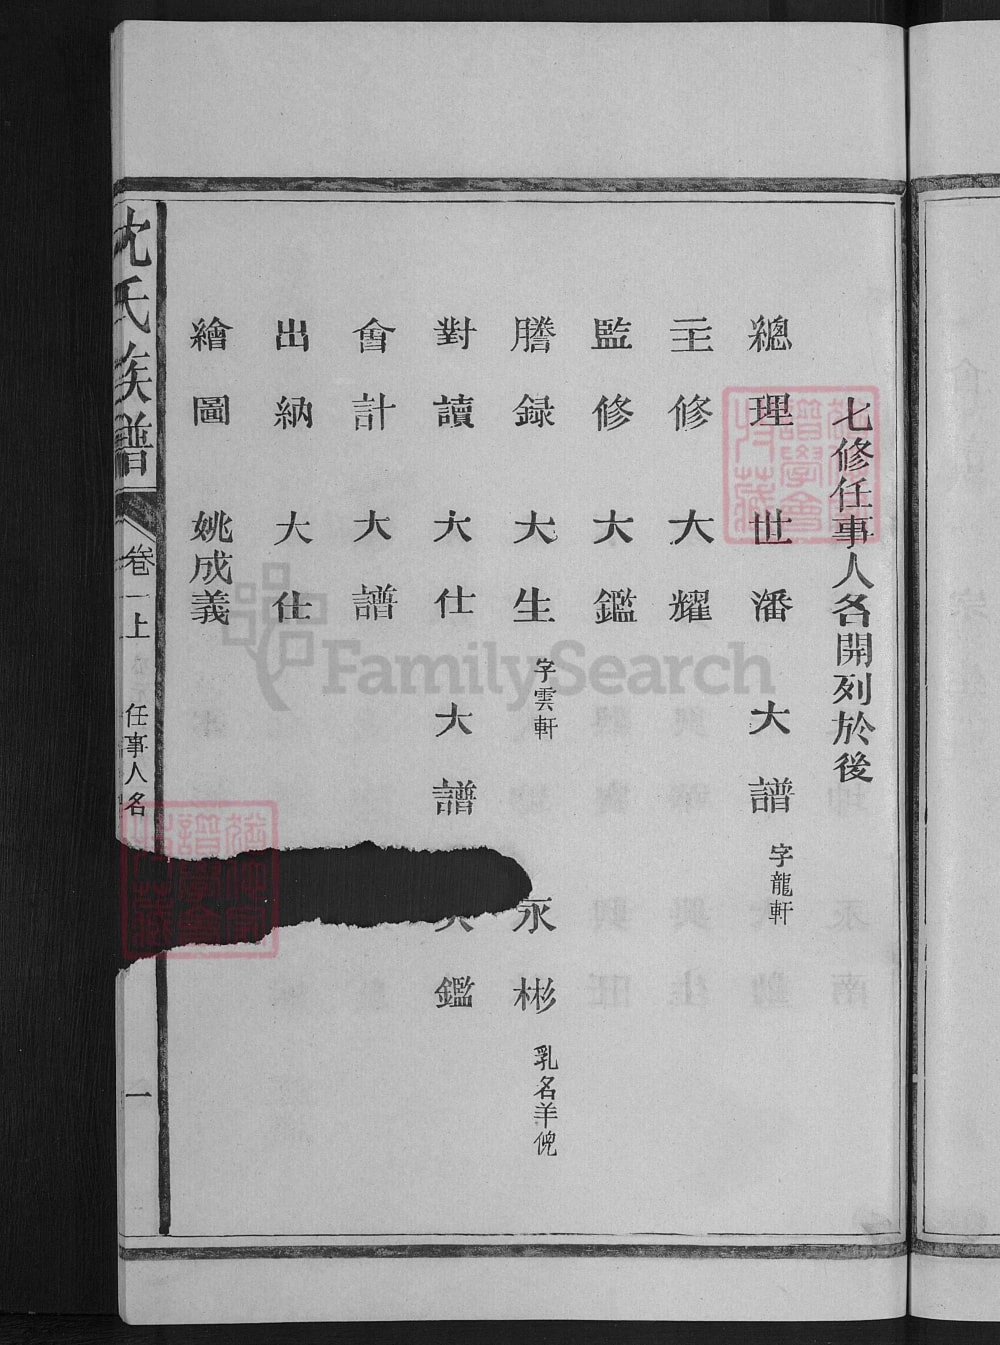 七修任事人名開列於後
總理 世潘 大譜 字龍軒
主修 大耀
監修 大鑑
謄録 大生 字雲軒 永彬 乳名羊倪
對讀 大仕 大譜 大鑑
會計 大譜
出納 大仕
繪圖 姚成義
沈氏族譜 卷一上 任事人名 一
FamilySearch